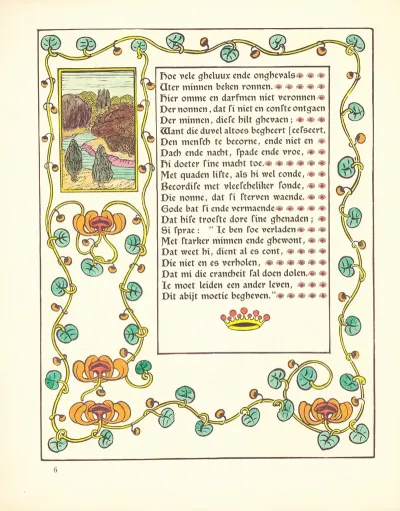 Hoe vele gheluux ende onghevals
Uter minnen beken ronnen.
Hier omme en darfmen niet veronnen
Der nonnen, dat si niet en conste ontgaen
Der minnen, diese hilt ghevaen;
Want die duvel altoes begheert [eesseert,
Den mensch te becorne, ende niet en
Dach ende nacht, spade ende vroe,
Hi doeter sine macht toe.
Met quaden liste, als hi wel conde,
Becordise met vleescheliker sonde,
Die nonne, dat si sterven waende.
Gode bat si ende vermaende
Dat hise troeste dore sine ghenaden;
Si sprac: "Ic ben soe verladen
Met starker minnen ende ghewont,
Dat weet hi, dient al es cont,
Die niet en es verholen,
Dat mi die crancheit sal doen dolen.
Ic moet leiden een ander leven,
Dit abijt moetic begheven."
6